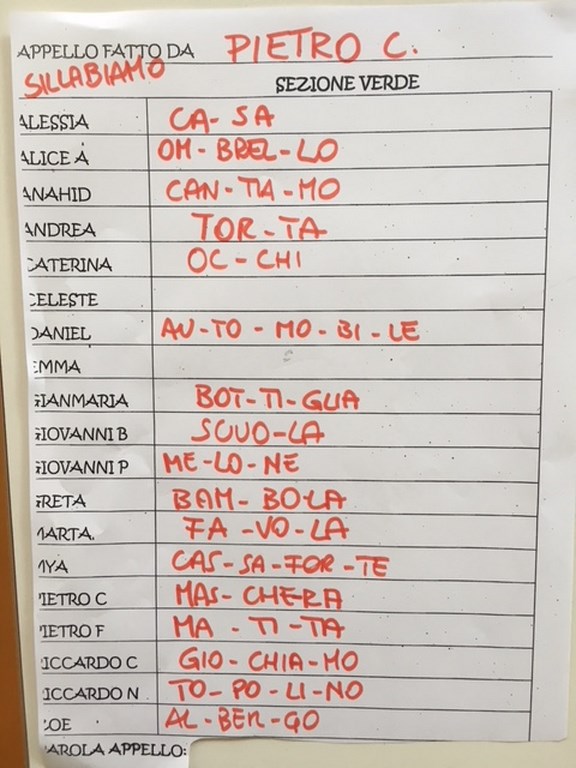 APPELLO FATTO DA PIETRO C.
SILLABIAMO SEZIONE VERDE
ALESSIA CA-SA
ALICE A OM-BREL-LO
ANAHID CAN-TIA-MO
ANDREA TOR-TA
CATERINA OC-CHI
CELESTE
DANIEL AU-TO-MO-BI-LE
EMMA
GIANMARIA BOT-TI-GLIA
GIOVANNI B SCUO-LA
GIOVANNI P ME-LO-NE
GRETA BAM-BOLA
MARTA. FA-VO-LA
MYA CAS-SA-FOR-TE
PIETRO C MAS-CHERA
PIETRO F MA-TI-TA
RICCARDO C GIO-CHIA-MO
RICCARDO N TO-PO-LI-NO
ZOE AL-BER-GO
PAROLA APPELLO: